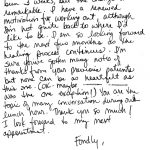 been 3 weeks, but the
remarkable. I have a renewed
motivation for working out, although
I'm not quite back to where I'd
like to be. I am so looking forward
to the next few months as the
healing process continues. I'm
sure you've gotten many notes of
thanks from your previous patients
but none can be as heartfelt as
this one (OK- maybe
the one exception!) You are the
topic of many conversations during our
lunch hours. Thank you so much!
I look forward to my next
appointment.
Fondly,